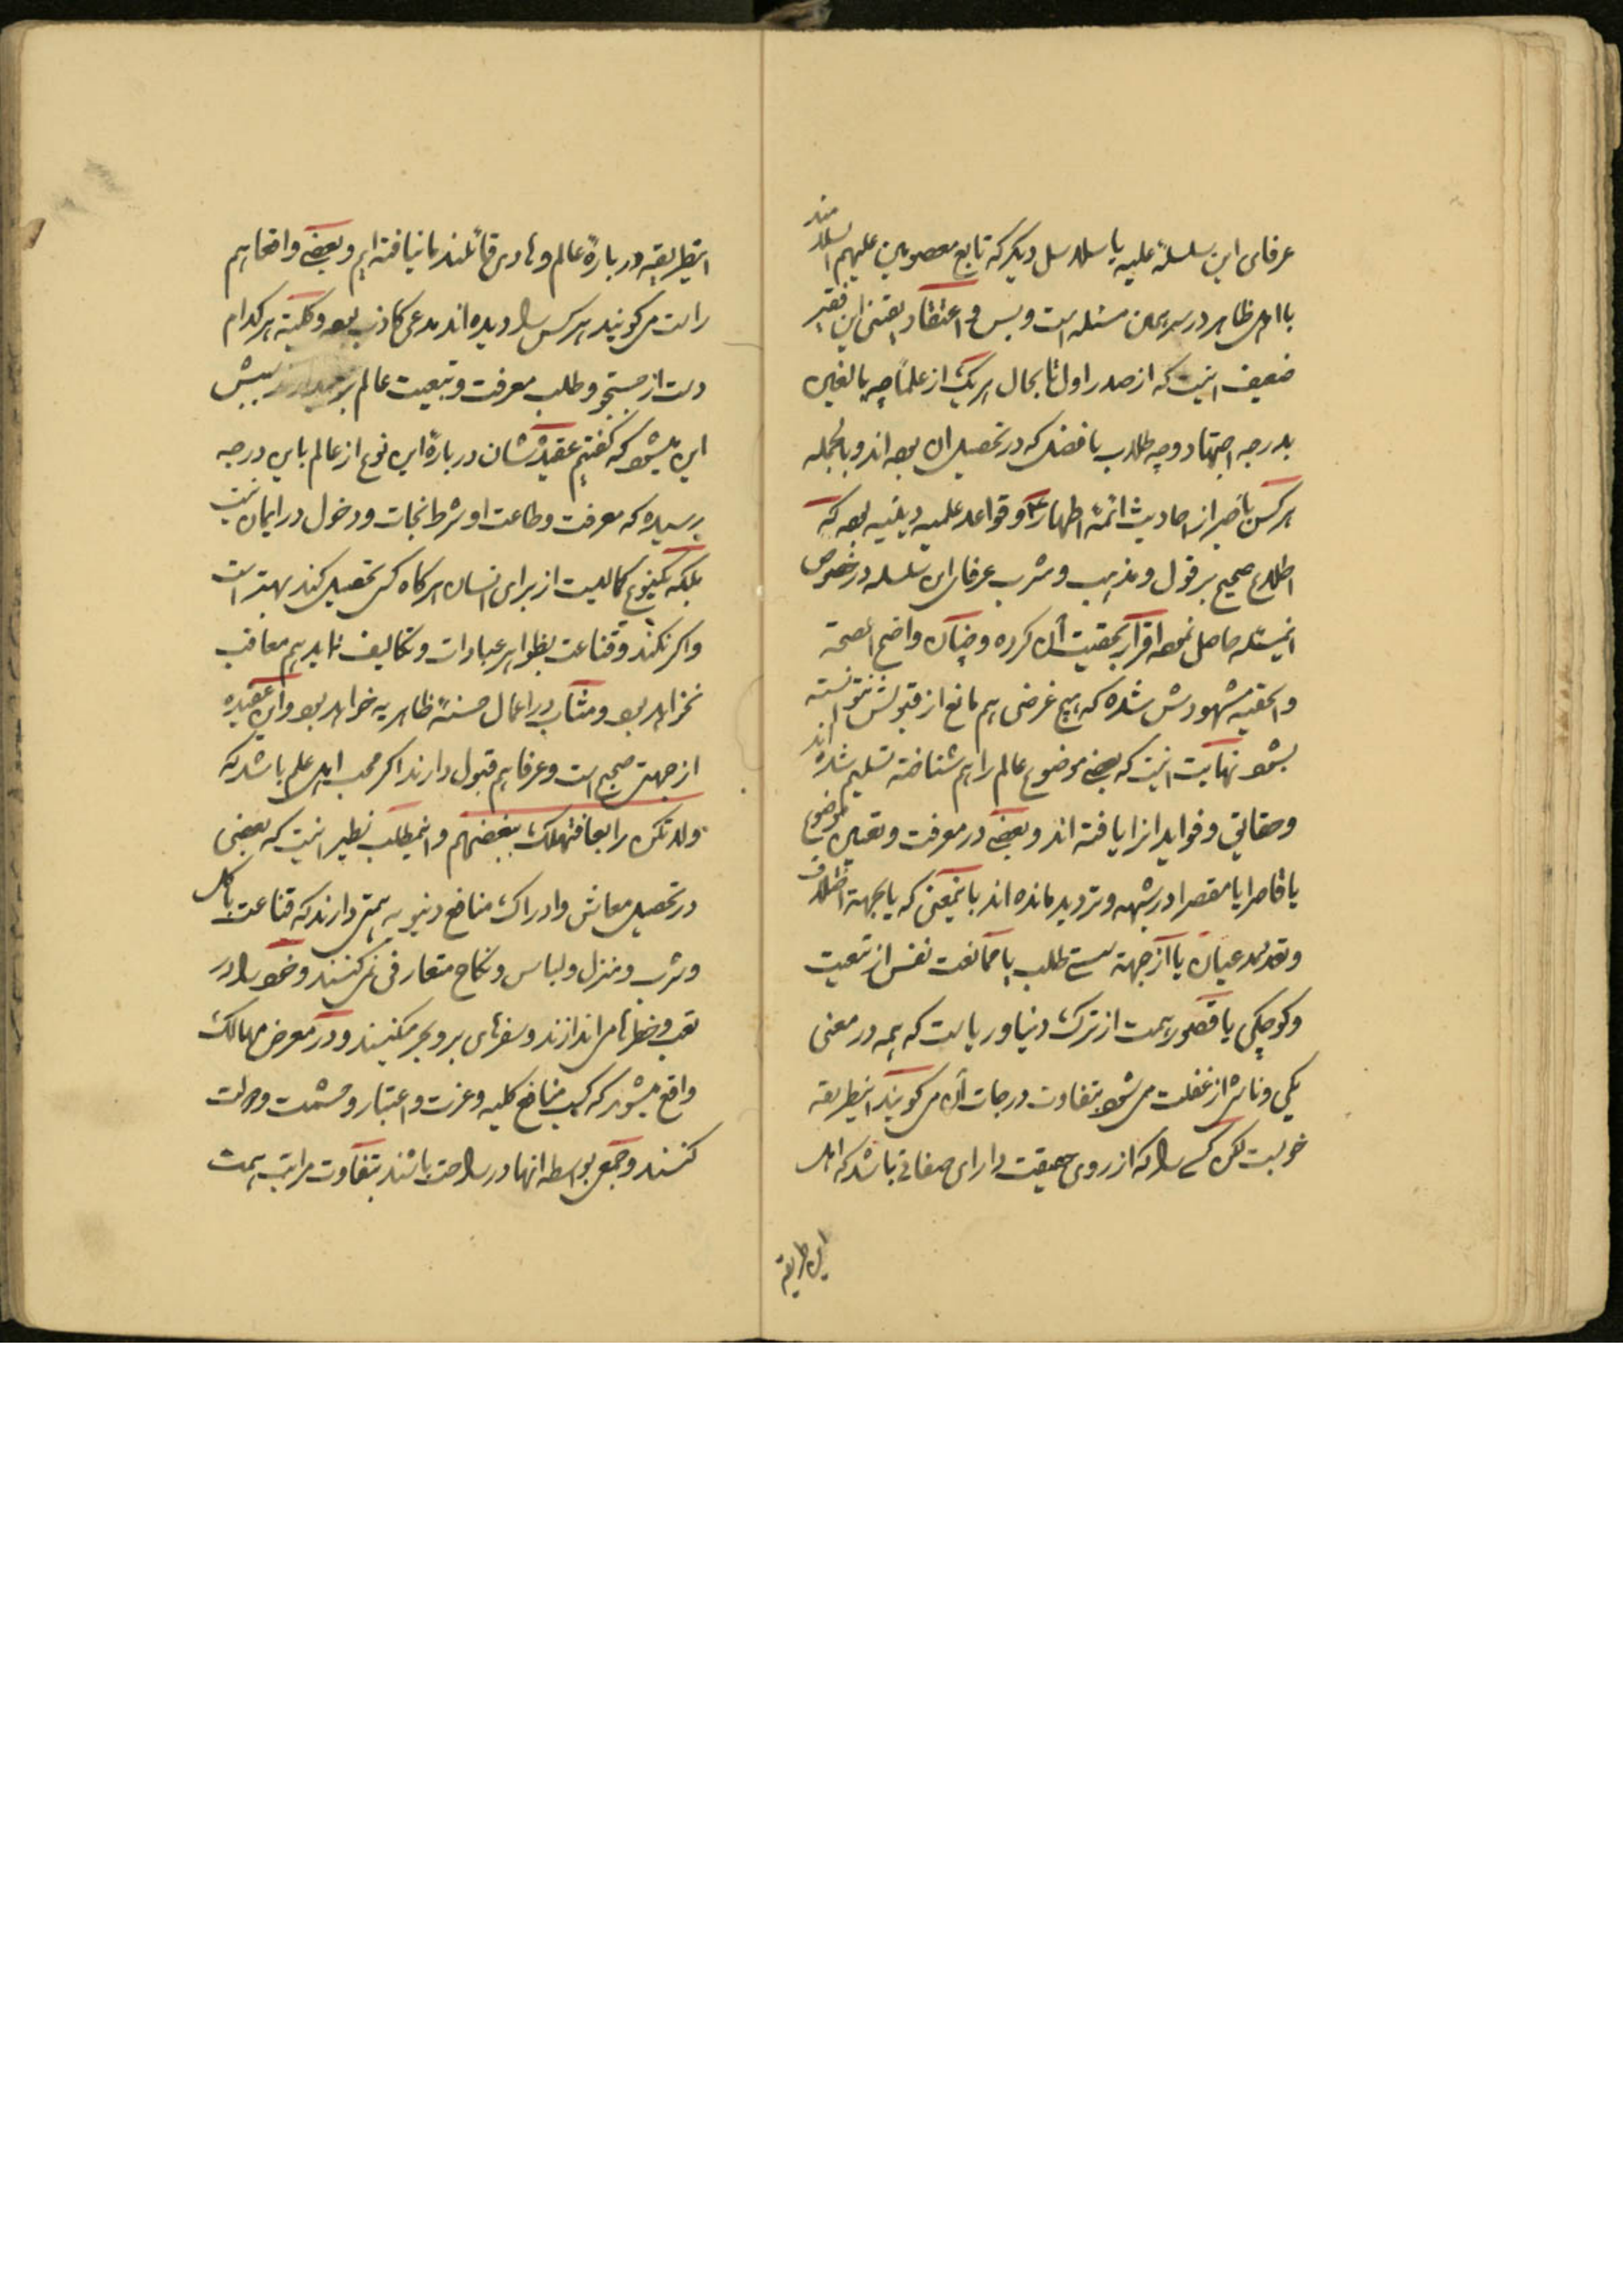 عرفای این سلسلهٔ علیه یا سلاسل دیگر که تابع معصومین علیهم السلامند
با اهل ظاهر در سر همین مسئله است و بس و اعتقاد یقینی این فقیر
ضعیف اینست که از صدر اول تا بحال هر یک از علما چه بالغین
بدرجه اجتهاد و چه طلاب با فضل که در تحصیل آن بوده‌اند و بالجمله
هر کس با خبر از احادیث ائمهٔ اطهار ع و قواعد علمیه دینیه بوده که
اطلاع صحیح بر قول و مذهب و مشرب عرفای این سلسله در خصوص
اینمسئله حاصل نموده اقرار بحقیت آن کرده و چنان واضح الصحة
و الحقیه مشهودش شده که هیچ غرضی هم مانع از قبولش نتوانسته
بشود نهایت اینست که بعضی موضوع عالم را هم شناخته تسلیم شده‌اند
و حقایق و فواید انرا یافته‌اند و بعضی در معرفت و تعیین موضوع
یا قاصرا یا مقصرا در شبهه و تردید مانده‌اند باینمعنی که یا بجهة اختلاف
و تعدد مدعیان یا از جهة سستی طلب یا ممانعت نفس از تبعیت
و کوچکی یا قصور همت از ترک دنیا و ریاست که همه در معنی
یکی و ناشی از غفلت می‌شود بتفاوت درجات آن میگویند اینطریقه
خوبست لکن کسی را که از روی حقیقت دارای صفاتی باشد که اهل
این طریقه
اینطریقه در بارهٔ عالم و هادی قائلند ما نیافته‌ایم و بعضی واضحا هم
راست میگویند هر کس را دیده‌اند مدعی کاذب بوده و کلیته هر کدام
دست از جستجو و طلب معرفت و تبعیت عالم بر میدارند سببش
این میشود که گفتیم عقیدشان در بارهٔ این نوع از عالم باین درجه
رسیده که معرفت و طاعت او شرط نجات و دخول در ایمان نیست
بلکه یکنوع کمالیست از برای انسان هر گاه کسی تحصیل کند بهتر است
و اگر نکند و قناعت بظواهر عبادات و تکالیف نماید هم معاقب
نخواهد بود و مثاب در اعمال حسنهٔ ظاهریه خواهد بود و این عقیده
از جهتی صحیح است و عرفا هم قبول دارند اگر محب اهل علم باشد که
ولا تکن رابعا فتهلک ببغضهم و اینمطلب نظیر اینست که بعضی
در تحصیل معاش و ادراک منافع دنیویه همتی دارند که قناعت باکل
و شرب و منزل و لباس و نکاح متعارفی نمی‌کنند و خود را در
تعب و خطرها می‌اندازند و سفرهای بر و بحر میکنند و در معرض مهالک
واقع میشوند که کسب منافع کلیه و عزت و اعتبار و حشمت و جلالت
کنند و جمعی بواسطه انها در راحت باشند بتفاوت مراتب همت